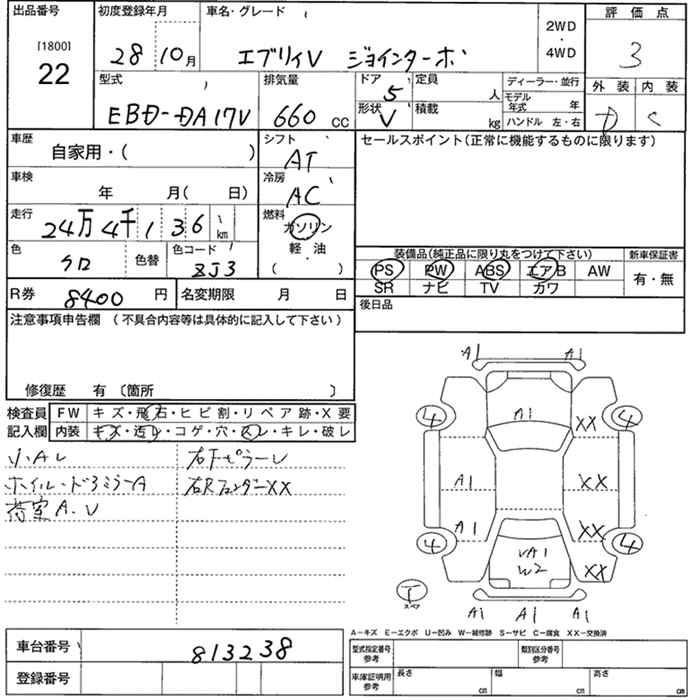 出品番号 初度登録年月 車名・グレード 評価点
[1800] 28 10月 エブリイV ジョインターボ 2WD・4WD 3
22
型式 排気量 ドア 定員 ディーラー・並行 外装 内装
EBD-DA17V 660 CC 5 人 モデル年式 年 D C
形状 V 積載 kg ハンドル 左・右
車歴 シフト セールスポイント(正常に機能するものに限ります)
自家用・( ) AT
車検 冷房
年 月( 日) AC
走行 燃料
24万4千136 km ガソリン
色 色替 色コード 軽・油
クロ ZJ3 ( )
装備品(純正品に限り丸をつけて下さい) 新車保証書
PS PW ABS エアB AW 有・無
SR ナビ TV カワ
R券 8400円 名変期限 月 日 後日品
注意事項申告欄 (不具合内容等は具体的に記入して下さい)
修復歴 有 〔箇所 〕
検査員 FW キズ・飛石・ヒビ割・リペア跡・X要
記入欄 内装 キズ・汚レ・コゲ・穴・スレ・キレ・破レ
小A U 右Fピラーレ
ホイル・ドアミラーA 右RフェンダーXX
荷室A.U
A1 A1
4 A1 XX 4
A1 XX
A1 XX
4 UA1 4
W2 XX
T
スペア A1 A1 A1
A-キズ E-エクボ U-凹み W-補修跡 S-サビ C-腐食 XX-交換済
車台番号 813238 型式指定番号 参考 類別区分番号 参考
登録番号 車庫証明用 参考 長さ cm 幅 cm 高さ cm